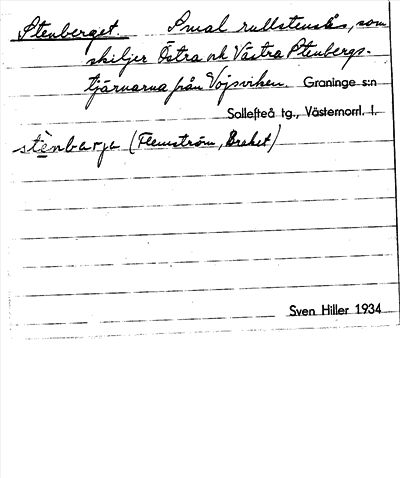 Stenberget. Smal rullstensås, som
skiljer Östra och Västra Stenbergs-
tjärnarna från Vojsviken. Graninge s:n
Sollefteå tg., Västernorrl. l.
stènbarja (Flemström, Braket)
Sven Hiller 1934